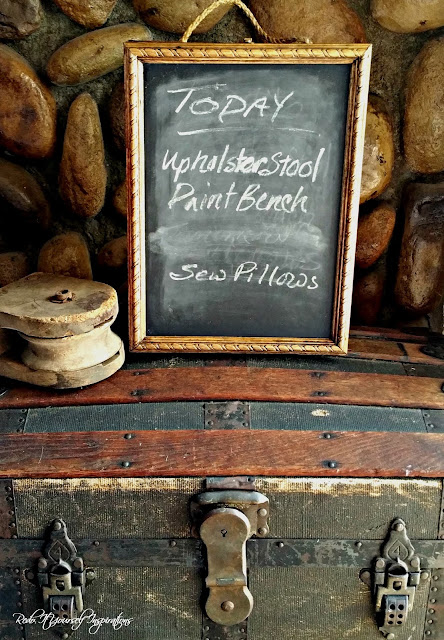 TODAY
Upholster Stool
Paint Bench
Sew Pillows
Redo It Yourself Inspirations